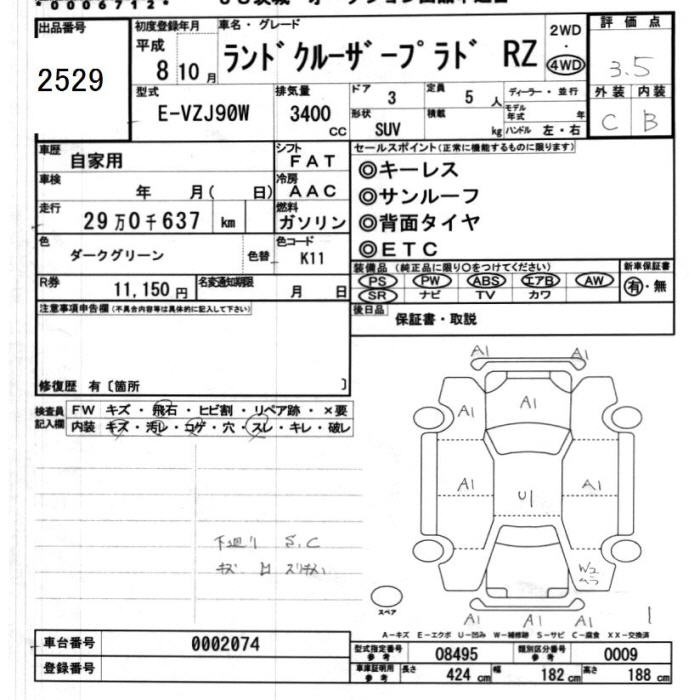 *0006712*
出品番号
2529
初度登録年月
平成
8 10 月
車名・グレード
ランドクルーザープラド RZ
2WD
・
4WD
評価点
3.5
外装 内装
C B
型式
E-VZJ90W
排気量
3400
CC
ドア
3
定員
5 人
形状
SUV
積載
kg
ディーラー・並行
モデル年式 年
ハンドル 左・右
車歴
自家用
シフト
FAT
車検
年 月( 日)
冷房
AAC
走行
29万0千637 km
燃料
ガソリン
色
ダークグリーン
色替
色コード
K11
R券
11,150円
名変通知期限
月 日
セールスポイント(正常に機能するものに限ります)
◎キーレス
◎サンルーフ
◎背面タイヤ
◎ETC
装備品(純正品に限り〇をつけてください)
PS PW ABS エアB AW
SR ナビ TV カワ
新車保証書
有・無
後日品
保証書・取説
注意事項申告欄(不具合内容等は具体的に記入して下さい)
修復歴 有〔箇所 〕
検査員記入欄
FW キズ・飛石・ヒビ割・リペア跡・×要
内装 キズ・汚レ・コゲ・穴・スレ・キレ・破レ
A1 A1
A1 A1 A1
A1 U1 A1
下廻り S.C
W2
ムラ
A1 A1 A1
スペア
1
A-キズ E-エクボ U-凹み W-補修跡 S-サビ C-腐食 XX-交換済
車台番号
0002074
登録番号
型式指定番号
参考
08495
類別区分番号
参考
0009
車庫証明用
参考
長さ 424 cm
幅 182 cm
高さ 188 cm